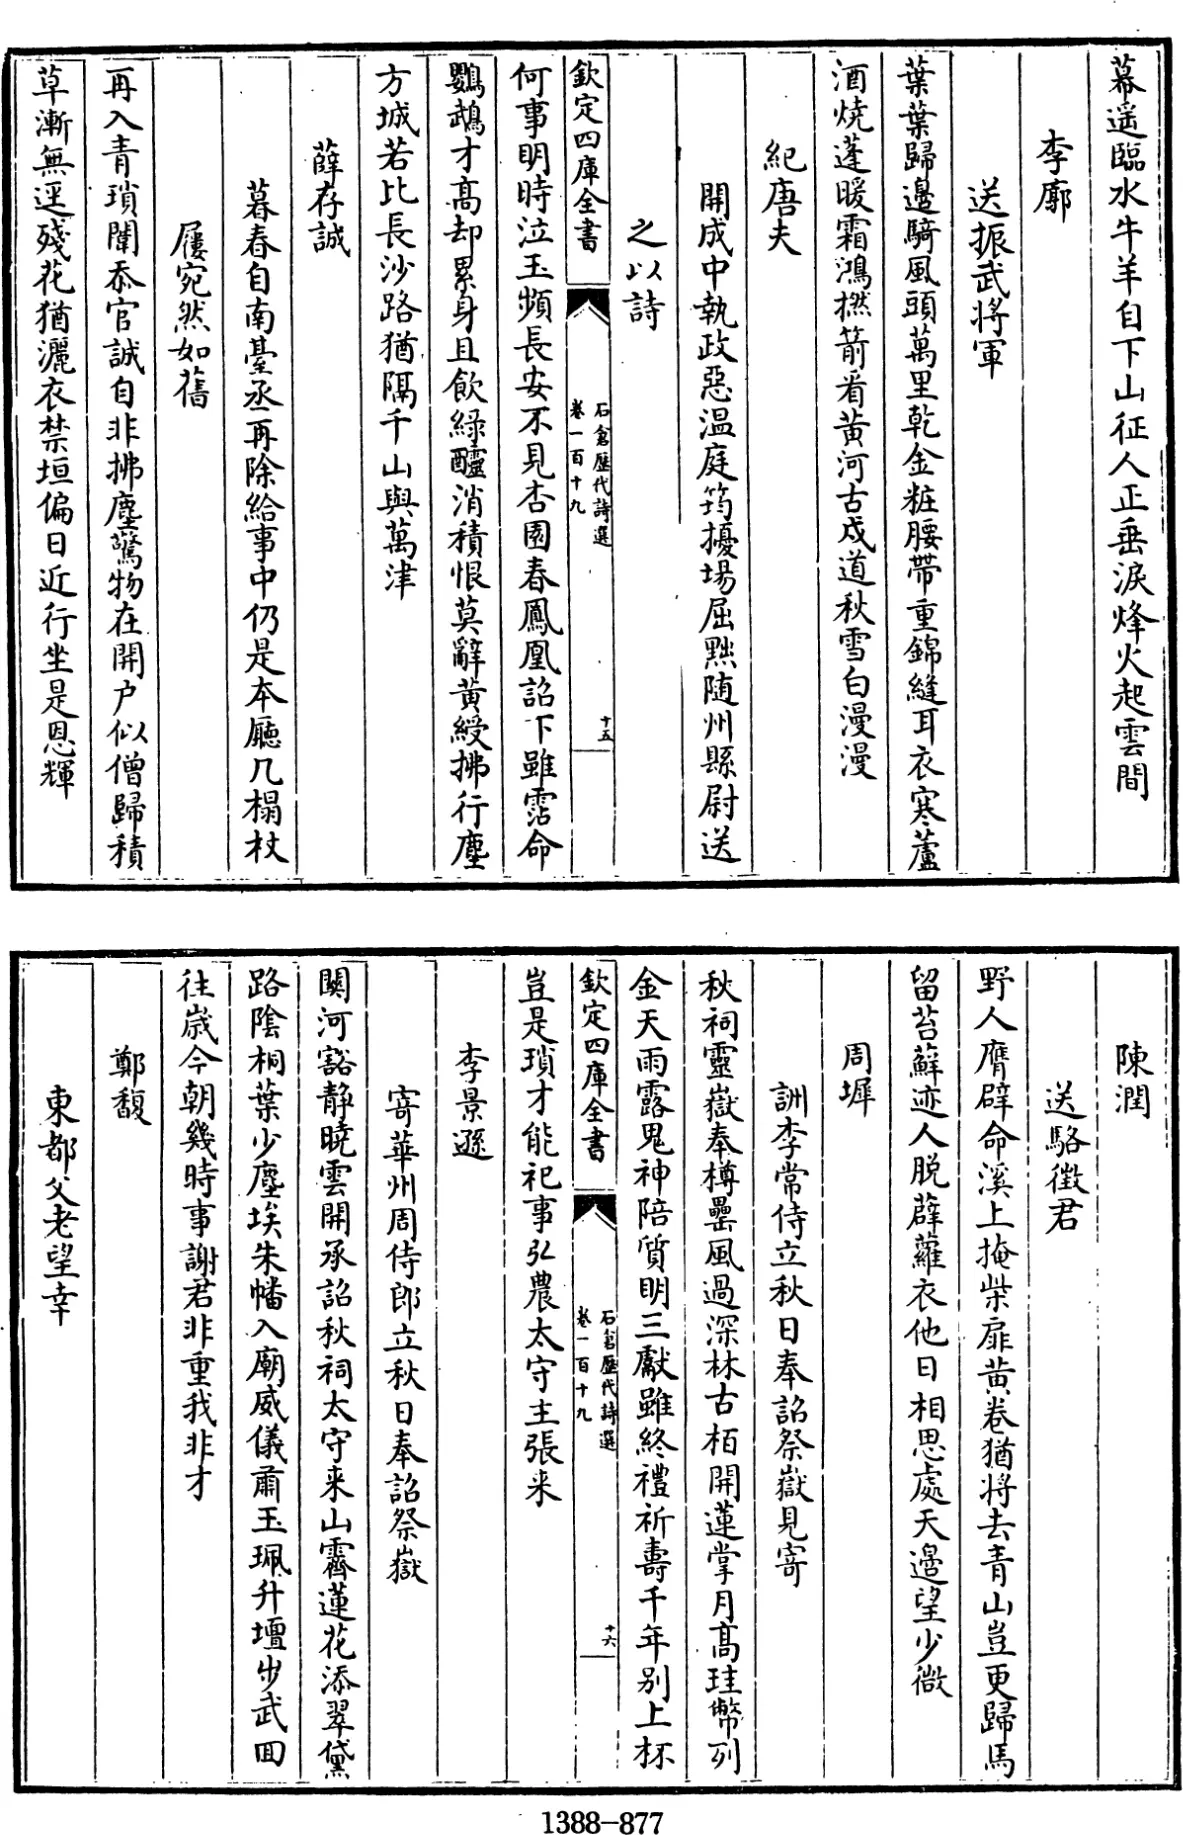 幕遥臨水牛羊自下山征人正垂淚烽火起雲間
李廓
送振武將軍
葉葉歸邊騎風頭萬里乾金粧腰帶重錦縫耳衣寒蘆
酒燒蓬暖霜鴻撚箭看黄河古戍道秋雪白漫漫
紀唐夫
開成中執政惡温庭筠擾場屈黜随州縣尉送
之以詩
欽定四庫全書
石倉歷代詩選
卷一百十九
十五
何事明時泣玉頻長安不見杏園春鳳凰詔下雖霑命
鸚鵡才髙却累身且飲緑醽消積恨莫辭黄綬拂行塵
方城若比長沙路猶隔千山與萬津
薛存誠
暮春自南臺丞再除給事中仍是本廳几榻杖
屨宛然如舊
再入青瑣闈忝官誠自非拂塵驚物在開户似僧歸積
草漸無逕殘花猶灑衣禁垣偏日近行坐是恩輝
陳潤
送駱徵君
野人膺辟命溪上掩柴扉黄卷猶將去青山豈更歸馬
留苔蘚迹人脱薜蘿衣他日相思處天邊望少微
周墀
詶李常侍立秋日奉詔祭嶽見寄
秋祠靈嶽奉樽罍風過深林古栢開蓮掌月髙珪幣列
金天雨露鬼神陪質明三獻雖終禮祈壽千年别上杯
欽定四庫全書
石倉歷代詩選
卷一百十九
十六
豈是瑣才能祀事弘農太守主張来
李景遜
寄華州周侍郎立秋日奉詔祭嶽
關河豁静曉雲開承詔秋祠太守来山霽蓮花添翠黛
路陰桐葉少塵埃朱幡入廟威儀肅玉珮升壇步武回
往歲今朝幾時事謝君非重我非才
鄭馥
東都父老望幸
1388-877